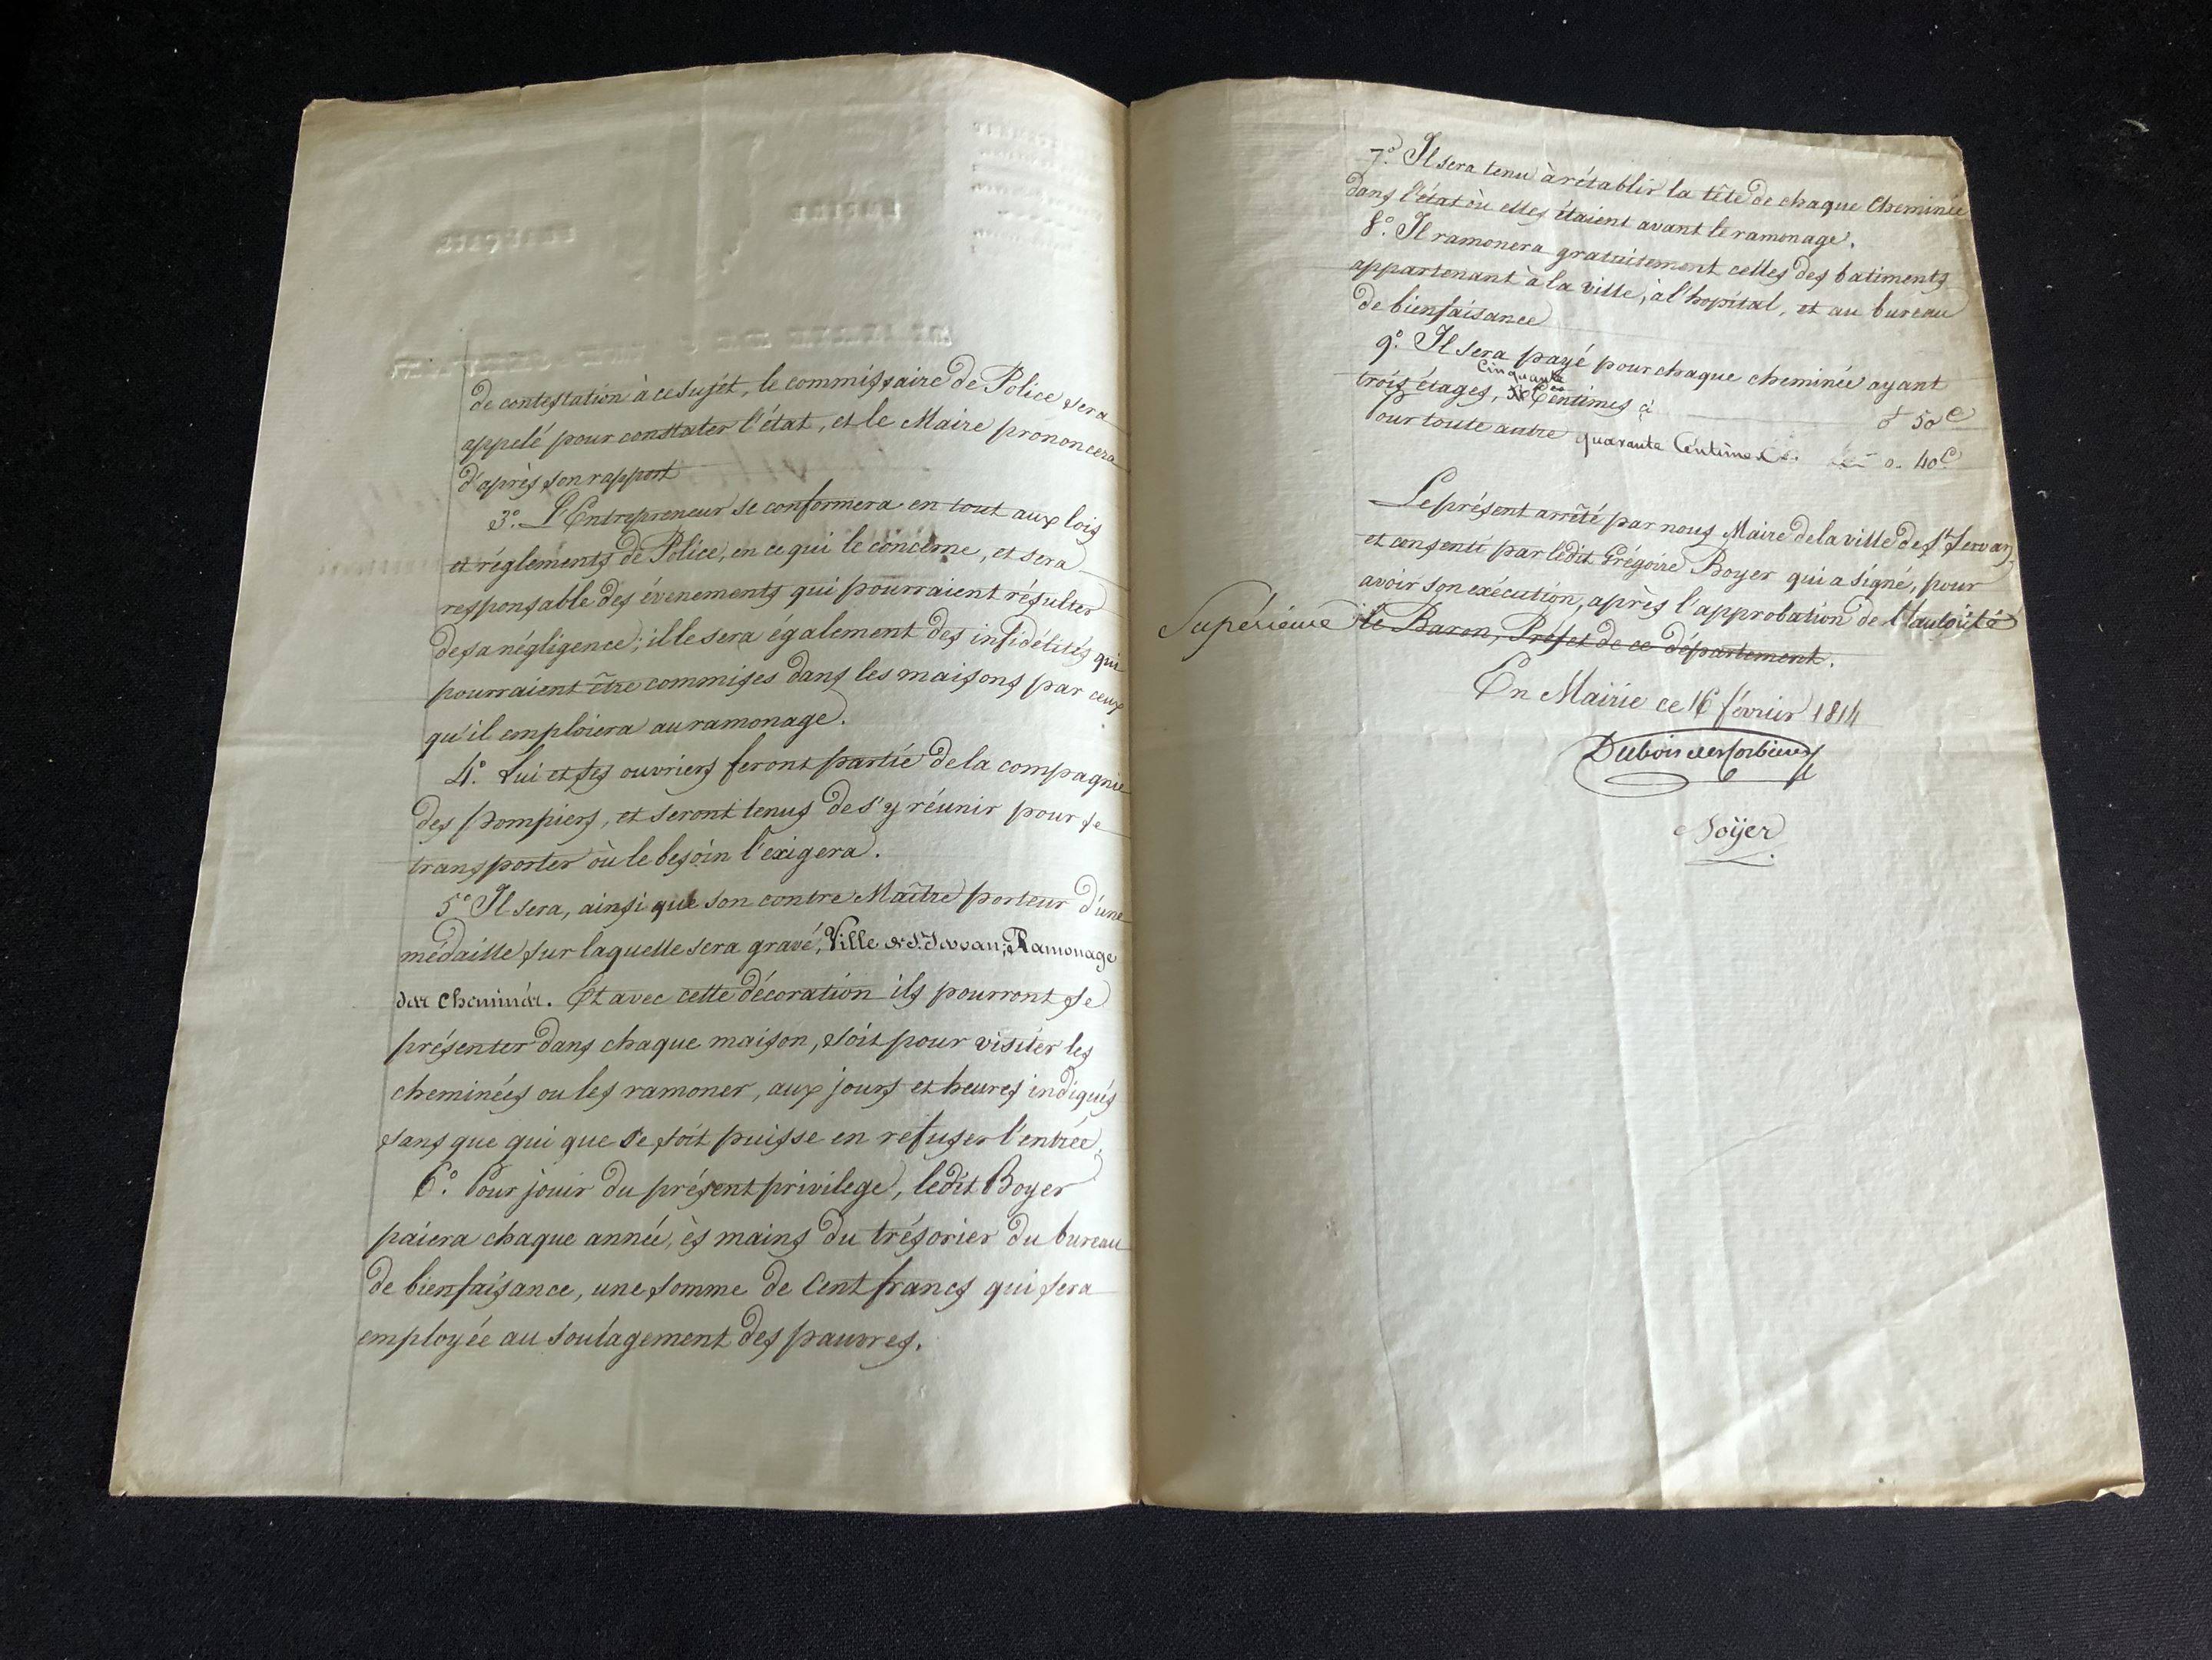 de contestation à ce sujet, le commissaire de Police sera
appelé pour constater l'état, et le Maire prononcera
d'après son rapport
3.° L'Entrepreneur se conformera en tout aux lois
et réglements de Police, en ce qui le concerne, et sera
responsable des évenements qui pourraient résulter
de sa négligence; il le sera également des infidélités qui
pourraient être commises dans les maisons par ceux
qu'il emploiera au ramonage.
4.° Lui et ses ouvriers feront partie de la compagnie
des Pompiers, et seront tenus de s'y réunir pour se
transporter où le besoin l'exigera.
5.° Il sera, ainsi que son contre Maître porteur d'une
médaille sur laquelle sera gravé, Ville de St. Servan; Ramonage
des cheminées. Et avec cette décoration ils pourront se
présenter dans chaque maison, soit pour visiter les
cheminées ou les ramoner, aux jours et heures indiqués
sans que qui que se soit puisse en refuser l'entrée.
6.° Pour jouir du présent privilege, ledit Boyer
paiera chaque année, ès mains du trésorier du bureau
de bienfaisance, une somme de Cent francs qui sera
employée au soulagement des pauvres.
7.° Il sera tenu à rétablir la tête de chaque Cheminée
dans l'état où elles étaient avant le ramonage.
8.° Il ramonera gratuitement celles des batiments
appartenant à la ville, à l'hopital, et au bureau
de bienfaisance
9.° Il sera payé pour chaque cheminée ayant
Cinquante
trois étages, Centimes ci 50c
Pour toute autre quarante Centimes Ci. 0. 40c
Le présent arrêté par nous Maire de la ville de St. Servan,
et consenti par ledit Grégoire Boyer qui a signé, pour
avoir son exécution, après l'approbation de l'autorité
Supérieure le Baron, Préfet de ce département.
En Mairie ce 16 février 1814
Dubois des Corbieres
Boÿer